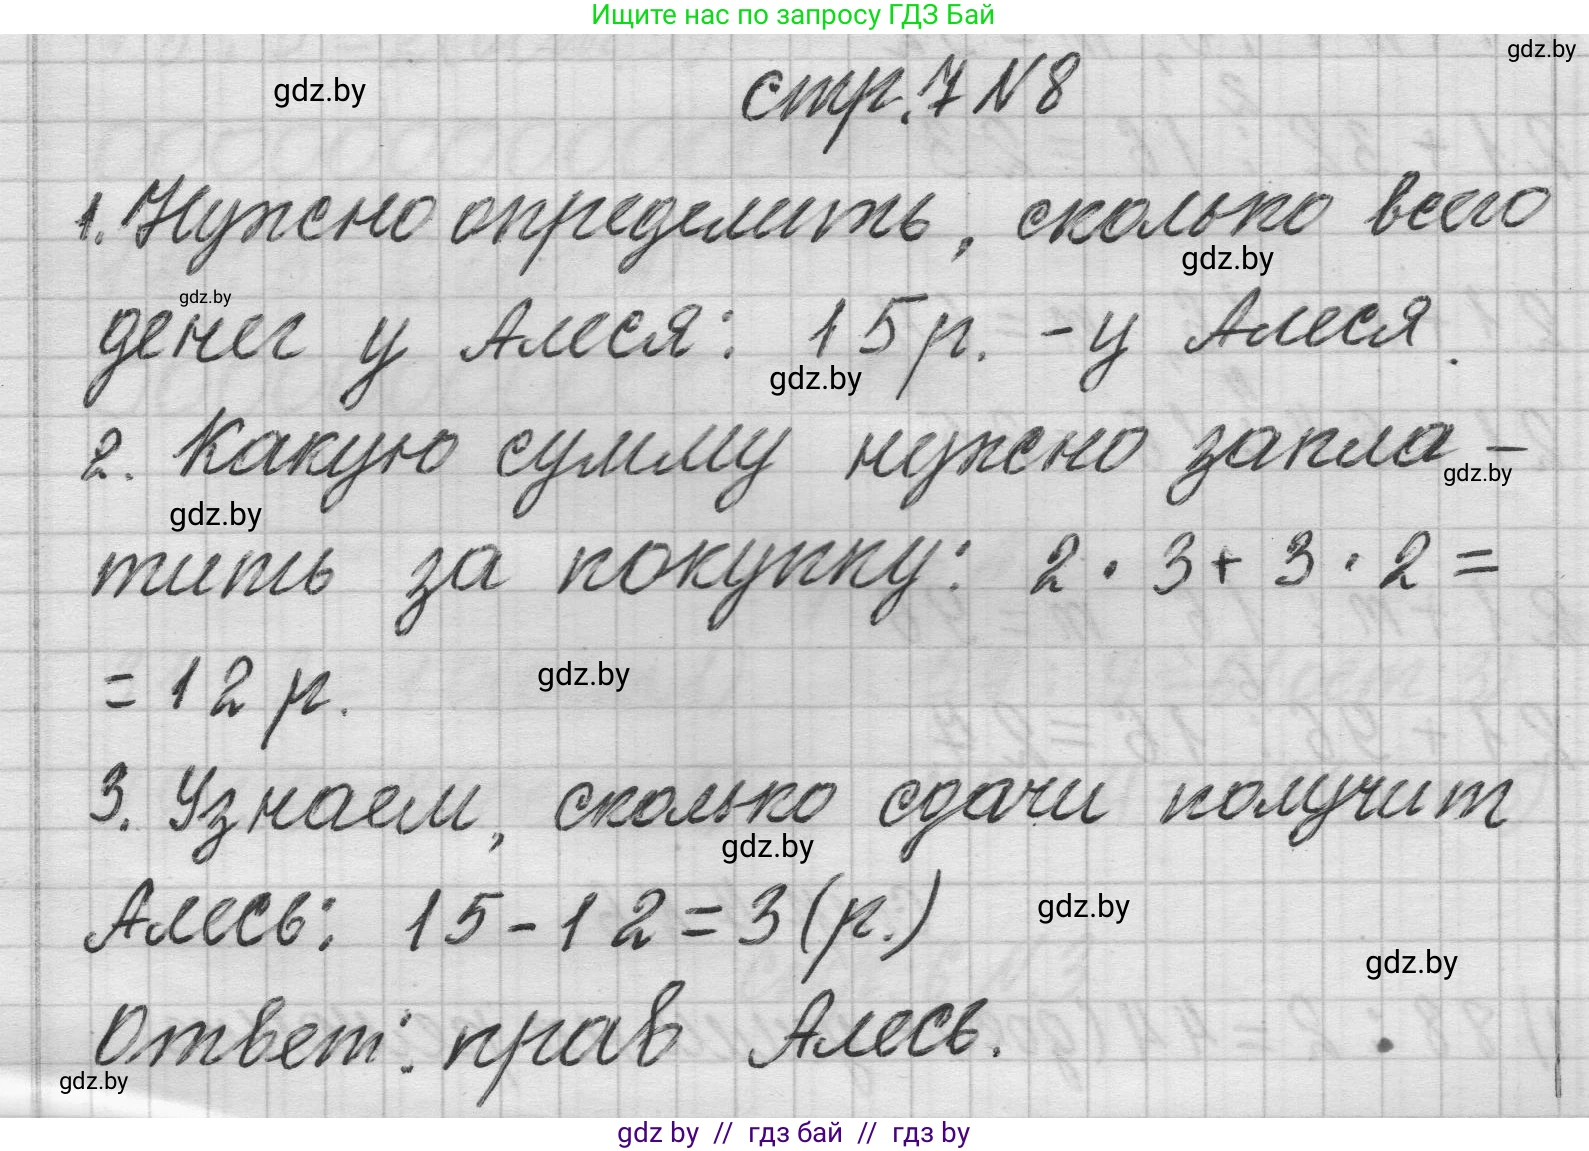 Ищите нас по запросу ГДЗ Бай
gdz.by
gdz.by
стр. 7 N 8
1. Нужно определить, сколько всего
gdz.by
gdz.by
денег у Алеся: 15 р. - у Алеся.
gdz.by
2. Какую сумму нужно запла -
gdz.by
gdz.by
тить за покупку: 2 · 3 + 3 · 2 =
= 12 р.
gdz.by
3. Узнаем, сколько сдачи получит
gdz.by
Алесь: 15 - 12 = 3 (р.)
gdz.by
gdz.by
Ответ: прав Алесь.
gdz.by
gdz by // гдз бай // гдз by